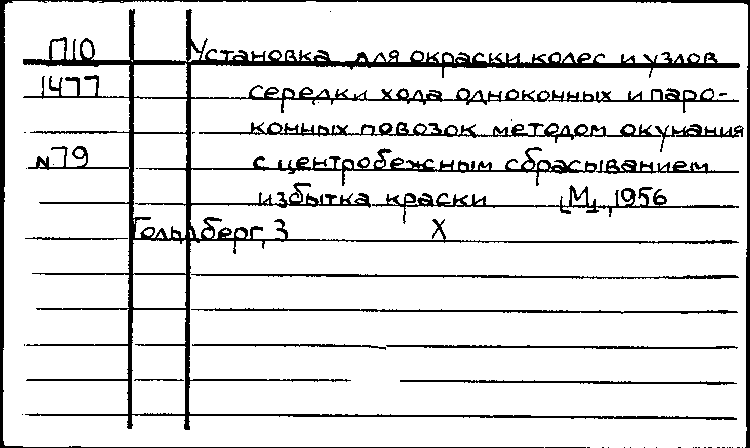 П10 Установка для окраски колес и узлов
1477 середки хода одноконных и паро-
конных повозок методом окунания
N79 с центробежным сбрасыванием
избытка краски [М], 1956
Гольдберг, З X